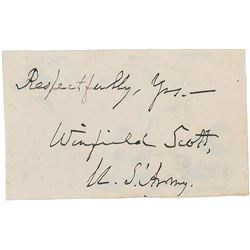 Respectfully, Yrs.—
Winfield Scott,
U. S. Army.